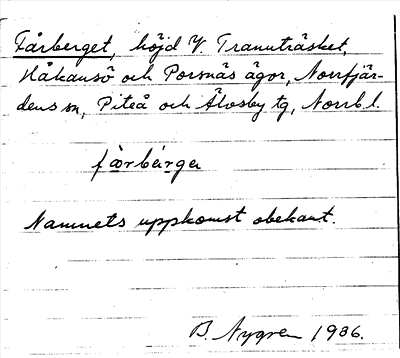 Fårberget, höjd V. Tranuträsket,
Håkansö och Porsnäs ägor, Norrfjär-
dens sn, Piteå och Älvsby tg, Norrb. l.
fårbärge
Namnets uppkomst obekant.
B. Nygren 1936.